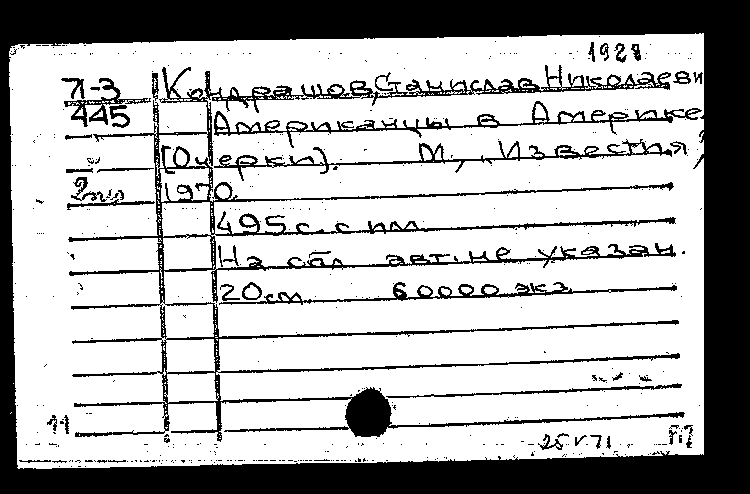 1928
Л-3 Кондрашов, Станислав Николаеви
445 Американцы в Америке.
[Очерки]. М., „Известия",
2 1970.
495 с. с илл.
На обл авт. не указан.
20 см 60000 экз.
11
25 V 71